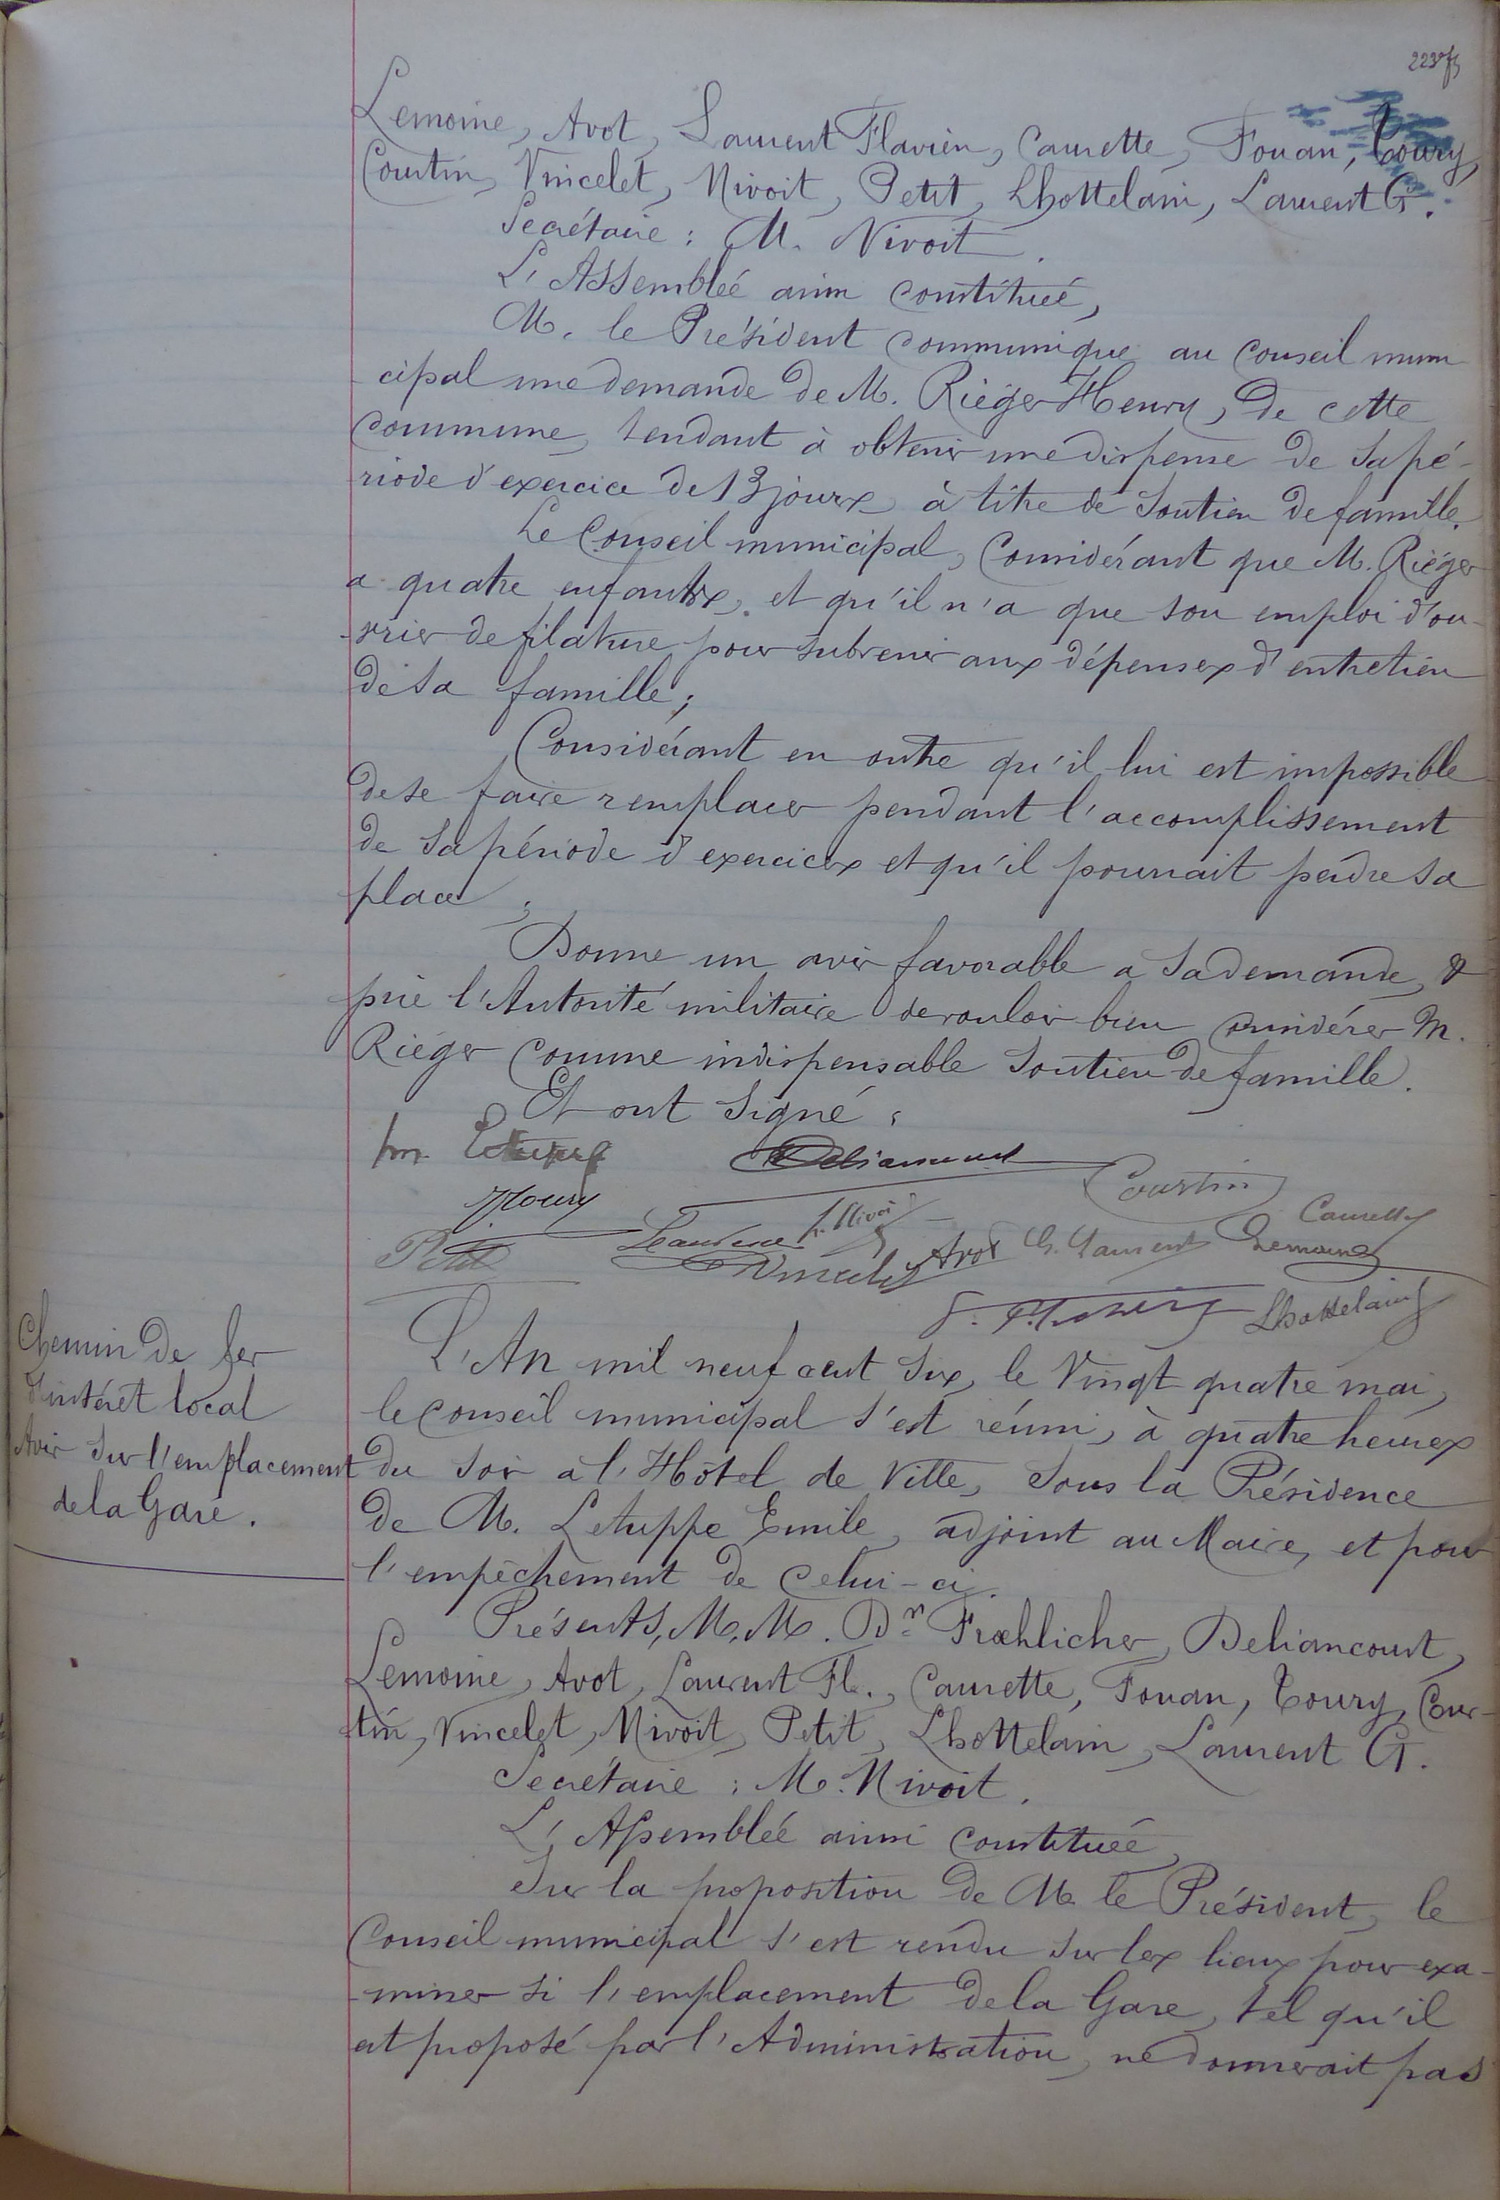 Lemoine, Avot, Laurent Flavien, Caurette, Fouan, Toury,
Courtin, Vincelet, Nivoit, Petit, Lhottelain, Laurent G.
Secrétaire : M. Nivoit.
L'Assemblée ainsi constituée,
M. le Président communique au Conseil muni
cipal une demande de M. Riéger Henry, de cette
commune, tendant à obtenir une dispense de sa pé-
riode d'exercice de 13 jours, à titre de soutien de famille.
Le Conseil municipal, Considérant que M. Riéger
a quatre enfants, et qu'il n'a que son emploi d'ou-
vrier de filature pour subvenir aux dépenses d'entretien
de sa famille ;
Considérant en outre qu'il lui est impossible
de se faire remplacer pendant l'accomplissement
de sa période d'exercices et qu'il pourrait perdre sa
place ;
Donne un avis favorable a sa demande, &
prie l'Autorité militaire de vouloir bien considérer M.
Riéger comme indispensable soutien de famille.
Et ont signé :
Deliancourt
Toury Courtin
Petit h. Nivoit Caurette
Vincelet Avot G. Laurent Lemoine
Lhottelain
Chemin de fer
d'intérêt local
Avis sur l'emplacement
de la Gare.
L'An mil neuf cent six, le Vingt quatre mai,
le Conseil municipal s'est réuni, à quatre heures
du soir a l'Hôtel de Ville, sous la Présidence
de M. Letuppe Emile, adjoint au Maire, et pour
l'empêchement de celui-ci.
Présents, M.M. Dr Frœhlicher, Deliancourt,
Lemoine, Avot, Laurent Fl., Caurette, Fouan, Toury, Cour-
tin, Vincelet, Nivoit, Petit, Lhottelain, Laurent G.
Secrétaire : M. Nivoit.
L'Assemblée ainsi constituée,
Sur la proposition de M. le Président, le
Conseil municipal s'est rendu sur les lieux pour exa-
miner si l'emplacement de la Gare, tel qu'il
est proposé par l'Administration, ne donnerait pas